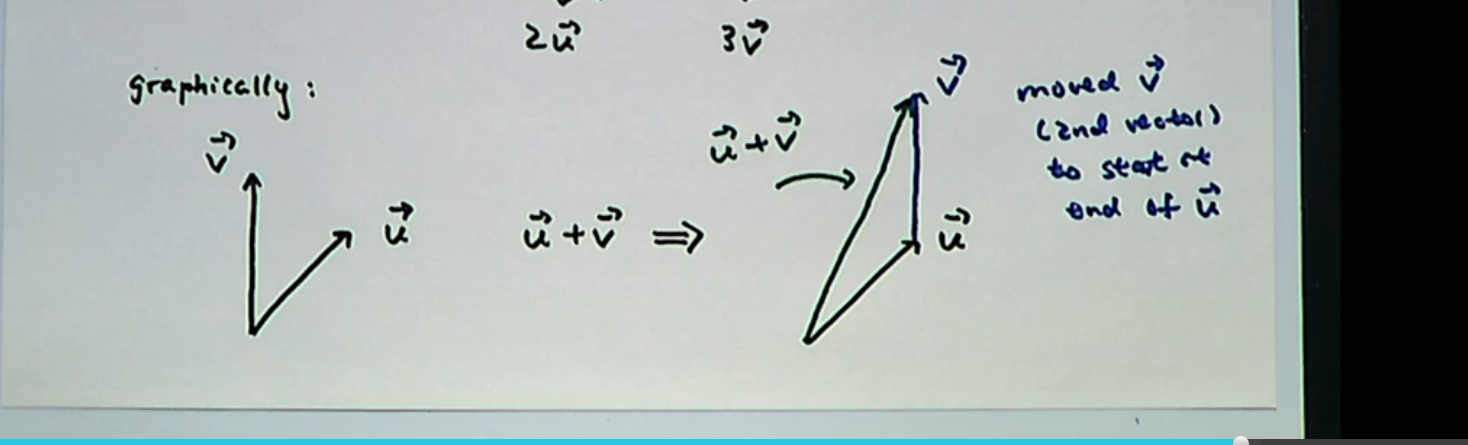 2u⃗ 3v⃗
graphically:
v⃗
u⃗
u⃗ + v⃗ ⇒
u⃗ + v⃗
v⃗
u⃗
moved v⃗
(2nd vector)
to start at
end of u⃗